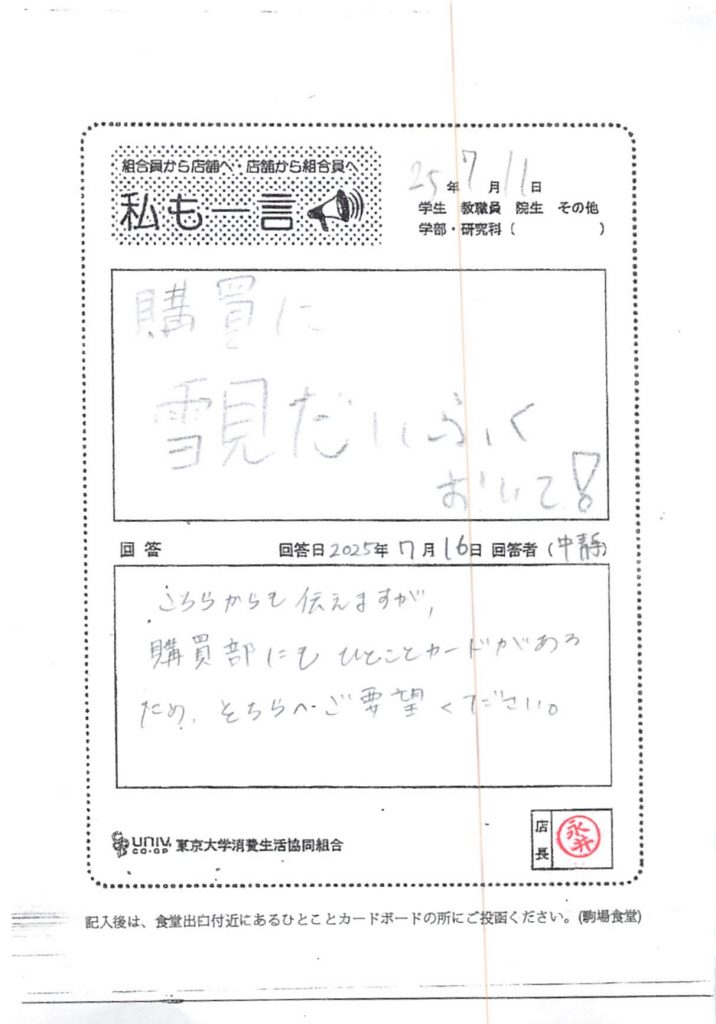 組合員から店舗へ・店舗から組合員へ
私も一言
25年7月11日
学生 教職員 院生 その他
学部・研究科( )
購買に
雪見だいふく
おいて!
回答 回答日2025年7月16日 回答者(中静)
こちらからも伝えますが、
購買部にもひとことカードがある
ため、そちらへご要望ください。
UNIV. CO-OP 東京大学消費生活協同組合
店長 永井
記入後は、食堂出口付近にあるひとことカードボードの所にご投函ください。(駒場食堂)